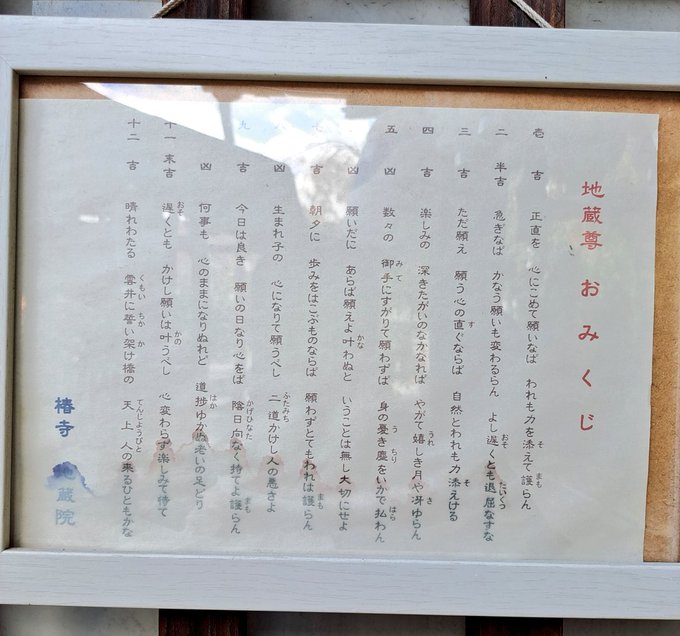 地蔵尊 おみくじ
壱 吉 正直を 心にこめて願いなば われも力を添えて護らん
二 半吉 急ぎなば かなう願いも変わるらん よし遅くとも退屈なすな
三 吉 ただ願え 願う心の直ぐならば 自然とわれも力添えける
四 吉 楽しみの 深きたがいのなかなれば やがて嬉しき月や冴ゆらん
五 凶 数々の 御手にすがりて願わずば 身の憂き塵をいかで払わん
凶 願いだに あらば願えよ叶わぬと いうことは無し大切にせよ
七 吉 朝夕に 歩みをはこぶものならば 願わずとてもわれは護らん
八 凶 生まれ子の 心になりて願うべし 二道かけし人の悪さよ
九 吉 今日は良き 願いの日なり心をば 陰日向なく持てよ護らん
凶 何事も 心のままになりぬれど 道捗ゆかぬ老いの足どり
十一 末吉 遅くとも かけし願いは叶うべし 心変わらず楽しみて待て
十二 吉 晴れわたる 雲井に誓い架け橋の 天上人の来るひともがな
椿寺 地蔵院